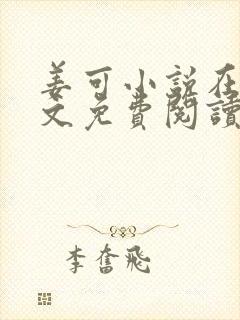 姜可小說在
文免費閱讀
李奮飛